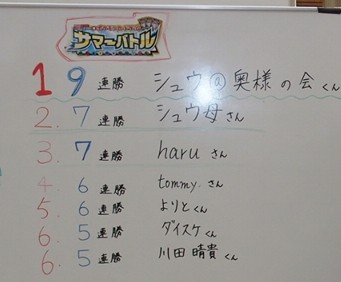 サマーバトル
1 9連勝 シュウ@奥様の会くん
2. 7連勝 シュウ母さん
3. 7連勝 haruさん
4. 6連勝 tommy.さん
5 6連勝 よりとくん
6. 5連勝 ダイスケくん
6. 5連勝 川田晴貴くん